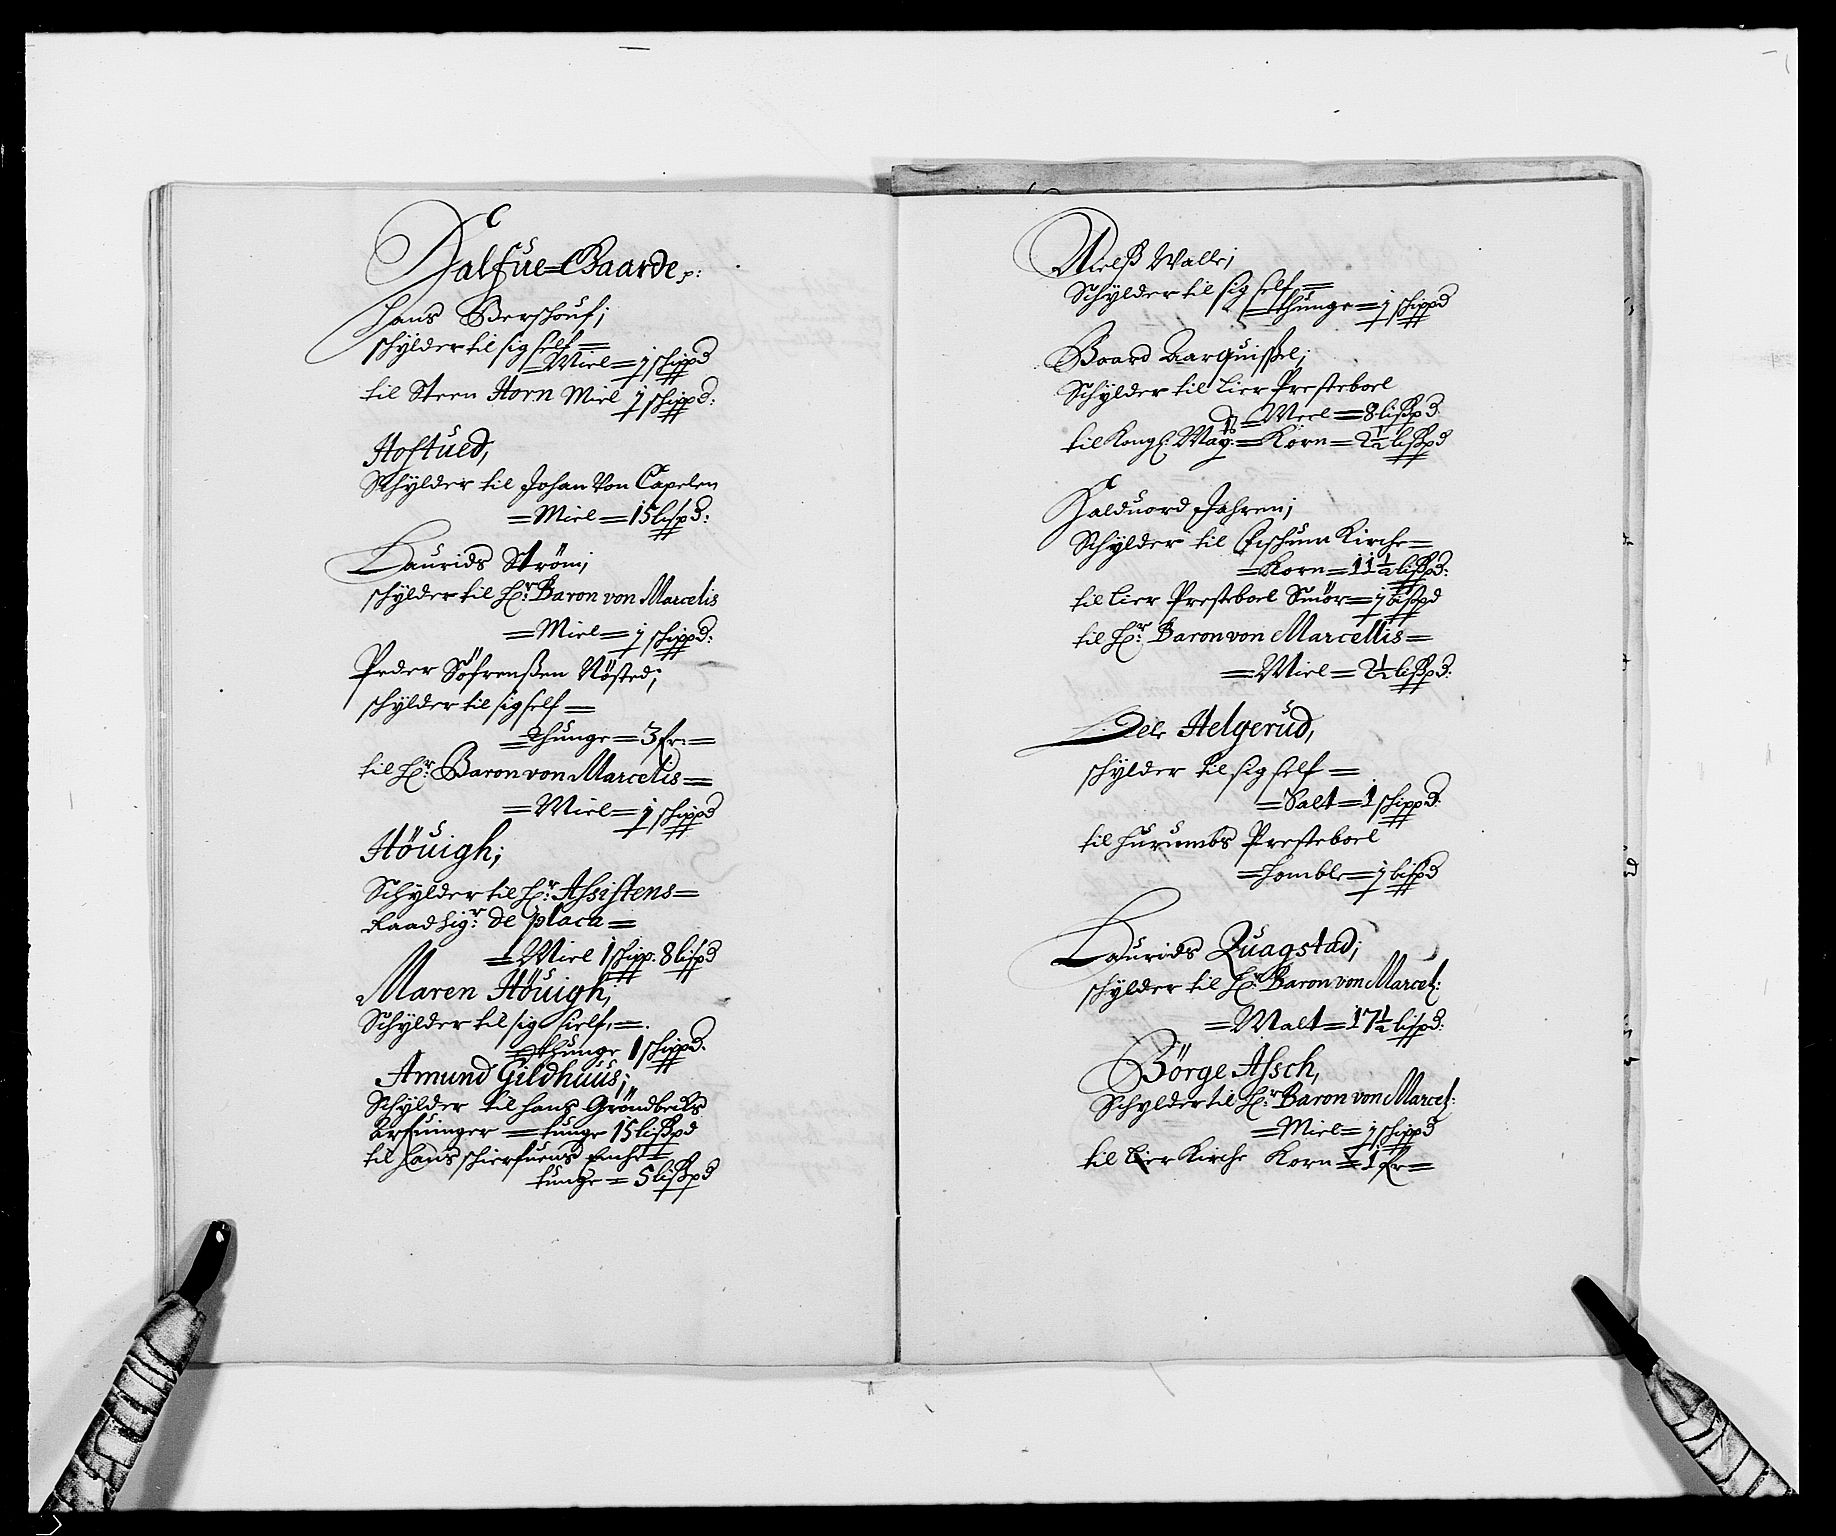 Halfue Gaarde,:
Hans Bershouf;
schylder til sig self =
= Miel = j schippd
til Steen Horn Miel j schippd:
Hoftued,
Schylder til Johan Von Capelen
= Miel = 15 lispd:
Laurids Ström;
schylder til Hr: Baron von Marcelis
= Miel = j schippd:
Peder Söfrenßen Nösted;
schylder til sig self =
= Thunge = 3 fr: =
til Hr: Baron von Marcelis =
= Miel = j schippd
Höuigh;
Schylder til Hr: Assistens =
Raad Sigr: de placa =
= Miel 1 schipp: 8 lispd
Maren Höuigh;
Schylder til sig sielf, =
= thunge 1 schippd.
Amund Gildhuus;
Schylder til Hans Gröndbechs
Arfuinger = tunge 15 lißpd
til Hans schierfuens Enche =
tunge = 5 lißpd
Nielß Walle;
Schylder til sig self =
= thunge = j schippd
Baard Aarquißel;
Schylder til Lier Presteboel
= Meel = 8 lißpd
til Kongl: Mayts: = Korn = 2½ lißpd
Halduord Jahren;
Schylder til Fischum Kirche =
= Korn = 11½ lißpd:
til Lier Presteboel Smör = j lißpd
til Hr: Baron von Marcellis =
= Miel = 2½ lißpd:
Helgerud,
schylder til sig self =
= Salt = 1 schippd:
til Hurumbs Presteboel
= Homble = j lißpd
Laurids Quagstad;
schylder til Hr: Baron von Marcel:
= Malt = 17½ lispd:
Börge Assch,
Schylder til Hr: Baron von Marcel:
= Miel = j schippd
til Lier Kirche Korn = 1 fr =